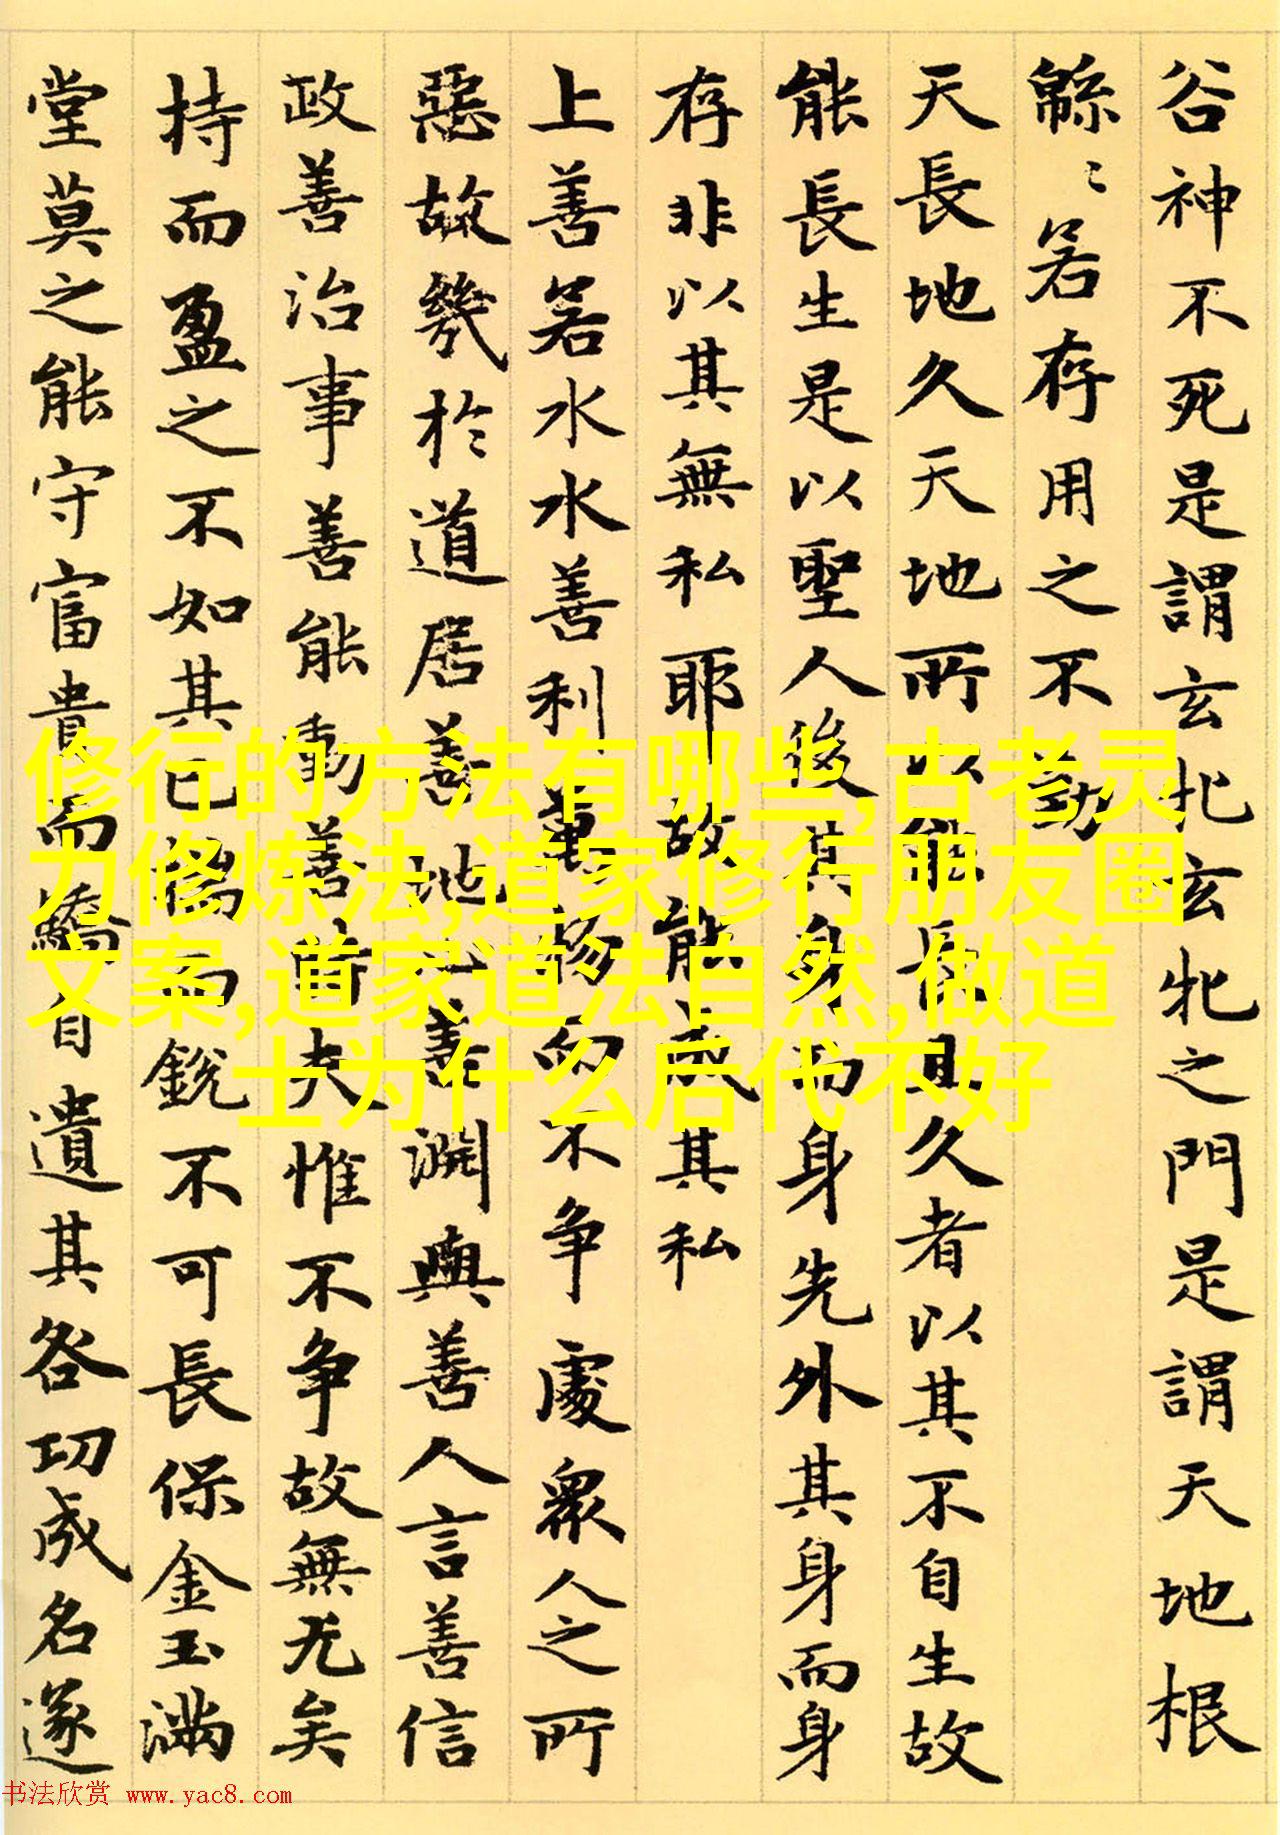 谷神不死是謂玄牝玄牝之門是謂天地根
緜〻若存用之不勤
天長地久天地所以能長且久者以其不自生故
能長生是以聖人後其身而身先外其身而身
存非以其無私耶故能成其私
上善若水水善利萬物而不争處衆人之所
惡故幾於道居善地心善渊與善人言善信
政善治事善能動善時夫惟不争故無尤矣
持而盈之不如其已揣而銳不可長保金玉满
堂莫之能守富貴而驕自遺其咎功成名遂
修行的方法有哪些,古老灵
力修炼法,道家修行朋友圈
文案,道家道法自然,做道
士为什么后代不好
书法欣赏 www.yac8.com